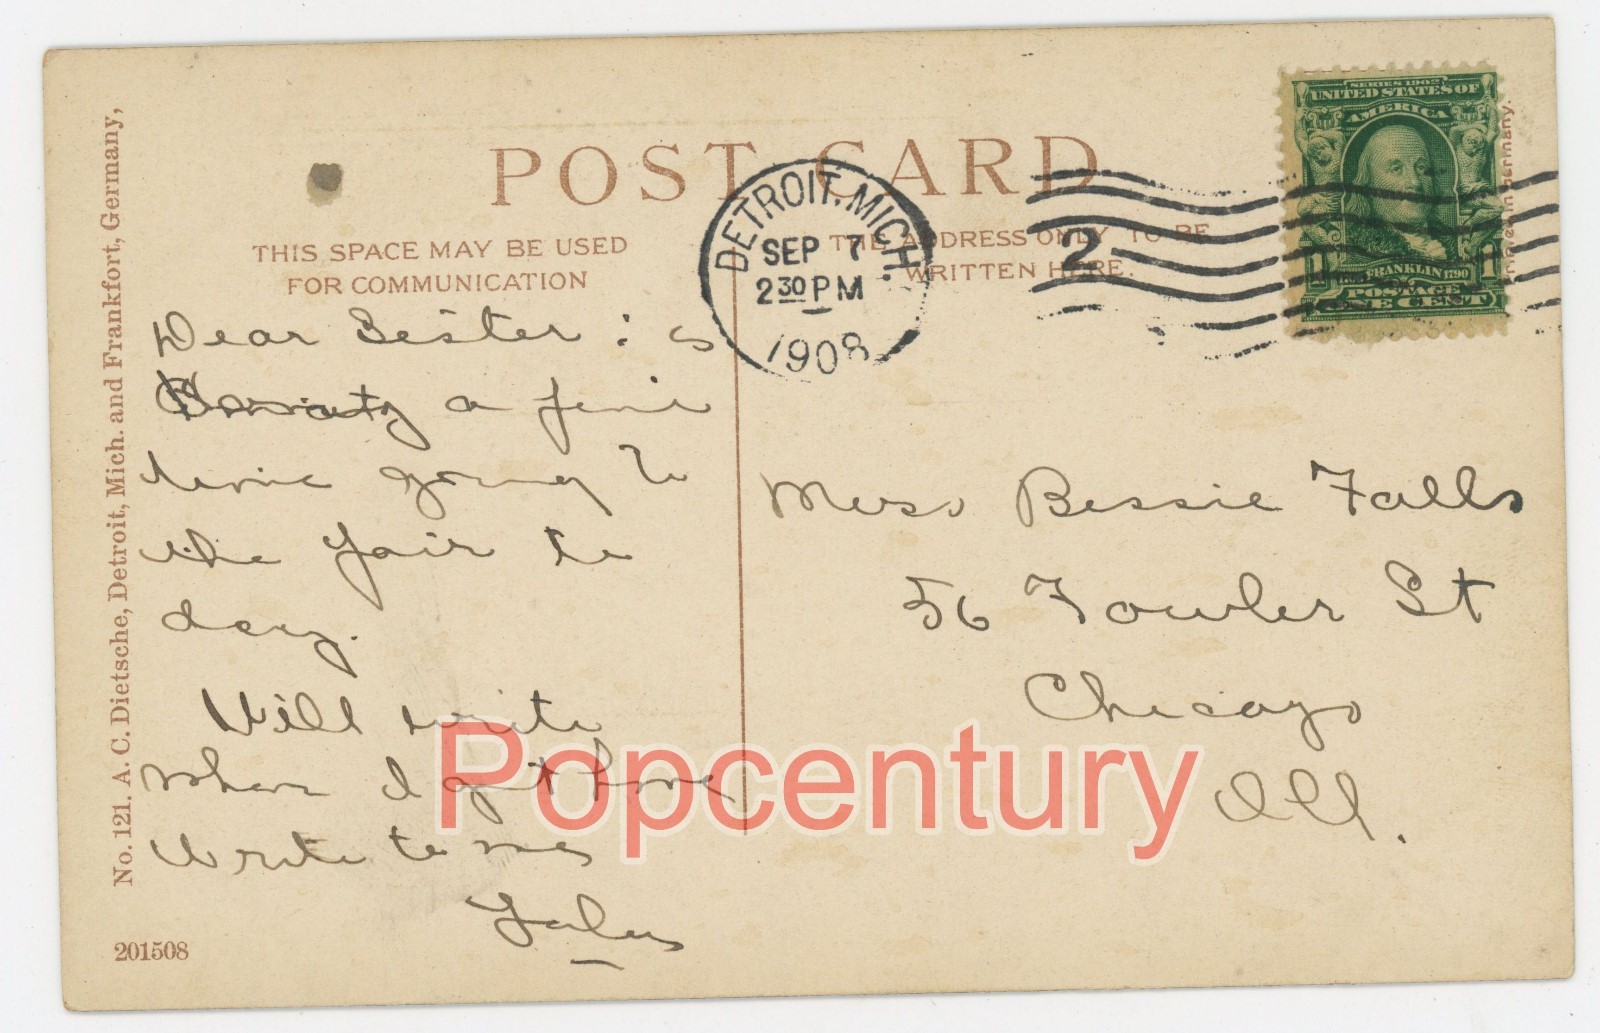 No. 121. A. C. Dietsche, Detroit, Mich. and Frankfort, Germany,
201508
POST CARD
THIS SPACE MAY BE USED
FOR COMMUNICATION
THE ADDRESS ONLY TO BE
WRITTEN HERE.
DETROIT, MICH.
SEP 7
2 30 PM
1908
2
SERIES 1902
UNITED STATES OF
AMERICA
1 FRANKLIN 1790 1
POSTAGE
ONE CENT
Germany.
Dear Sister:
a fine
time going to
the Fair to
day.
Will write
when I get home
Write to me
Miss Bessie Falls
56 Fowler St
Chicago
Ill.
Popcentury